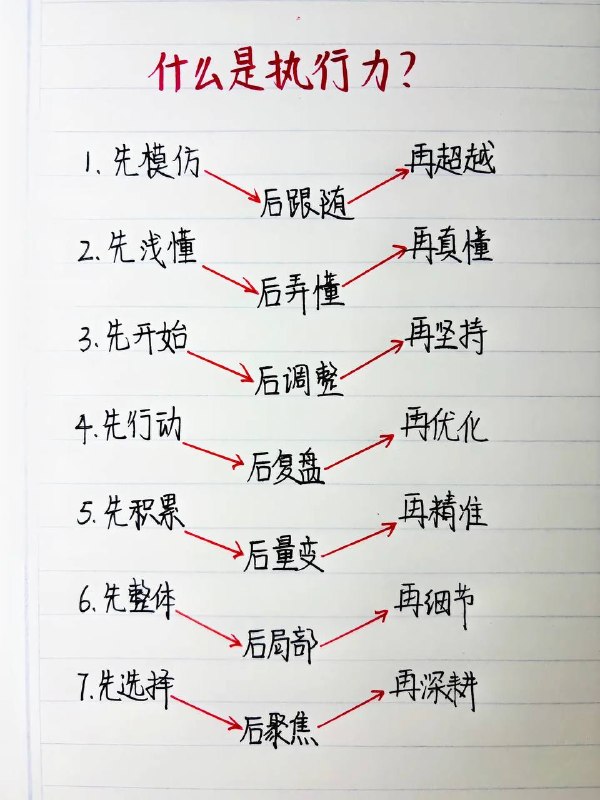 什么是执行力?
1、先模仿 后跟随 再超越
2、先浅懂 后弄懂 再真懂
3、先开始 后调整 再坚持
4、先行动 后复盘 再优化
5、先积累 后量变 再精准
6、先整体 后局部 再细节
7、先选择 后聚焦 再深耕